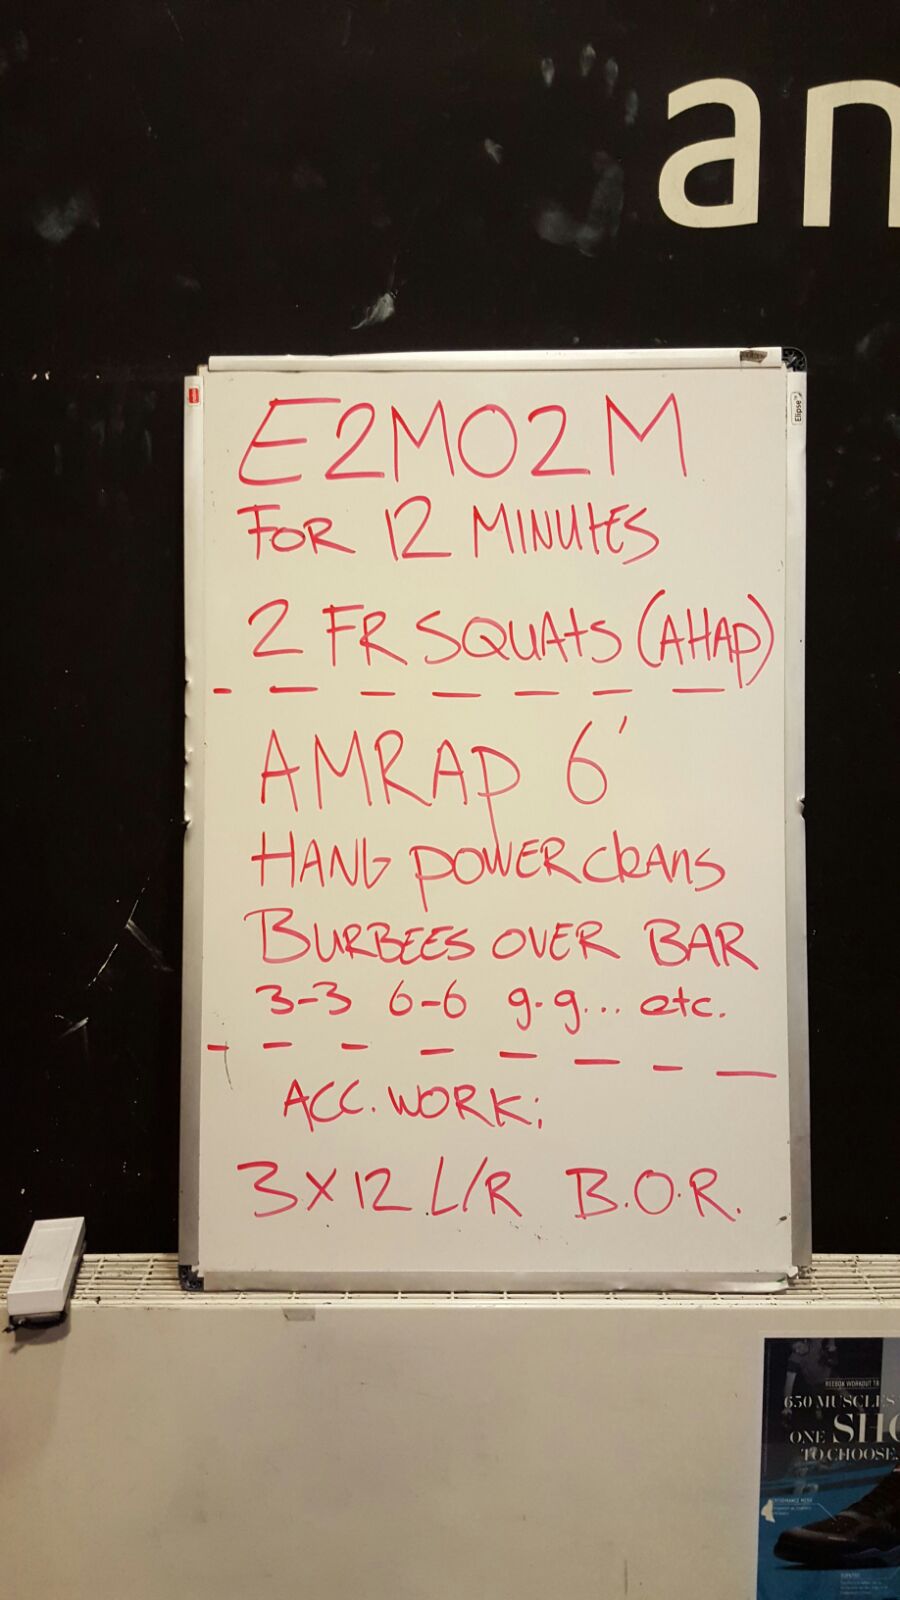 an
Elipse
E2MO2M
FOR 12 MINUTES
2 FR SQUATS (AHAP)
AMRAP 6'
HANG POWER CLEANS
BURBEES OVER BAR
3-3 6-6 9-9... etc.
ACC. WORK:
3X12 L/R B.O.R.
REEBOK WORKOUT TR
650 MUSCLES
ONE SHO
TO CHOOSE.